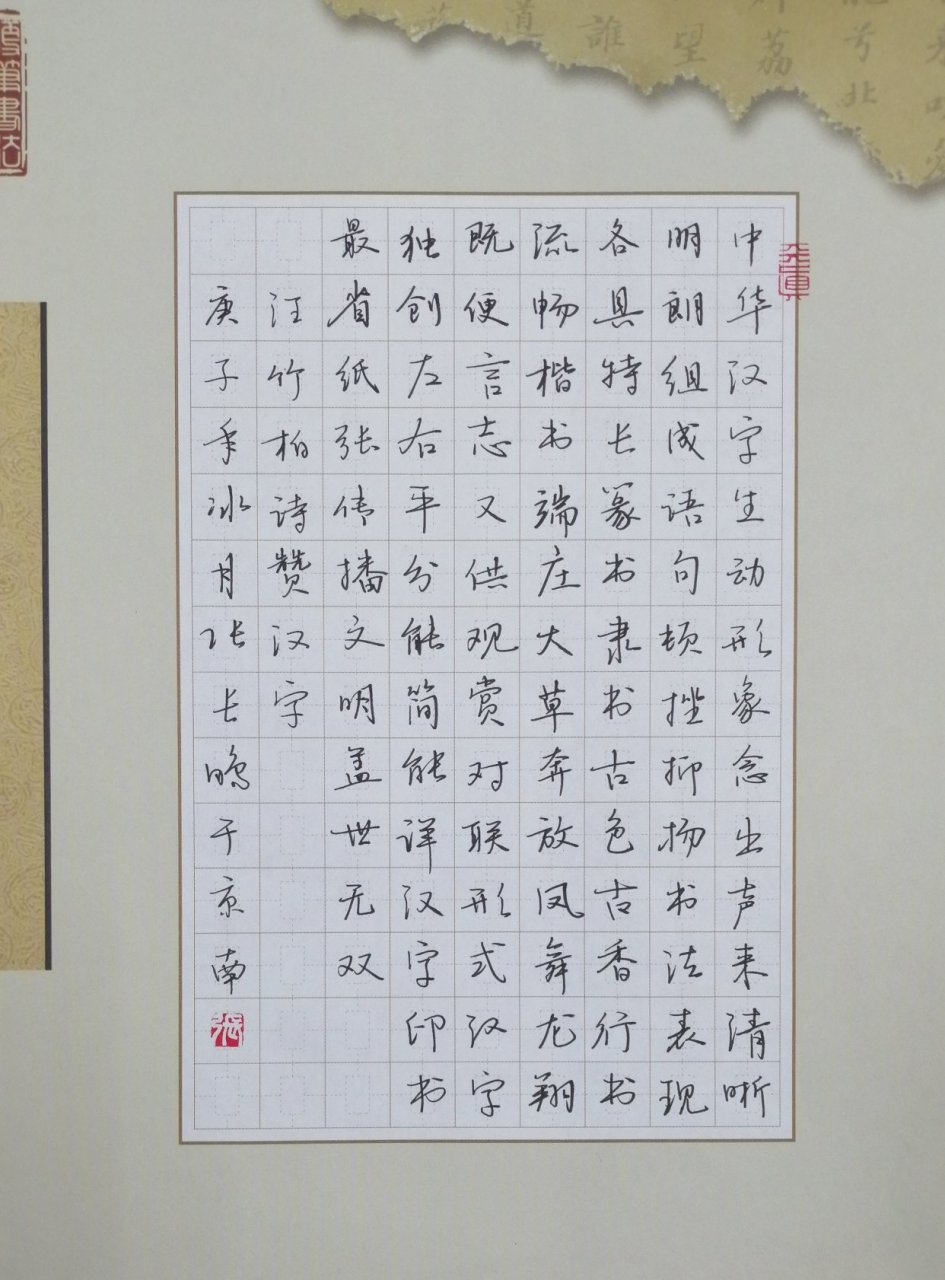 中华汉字生动形象念出声来清晰
明朗组成语句顿挫抑扬书法表现
各具特长篆书隶书古色古香行书
流畅楷书端庄大草奔放凤舞龙翔
既便言志又供观赏对联形式汉字
独创左右平分能简能详汉字印书
最省纸张传播文明盖世无双
汪竹柏诗赞汉字
庚子年冰月张长鸣于京南
張
硬筆書法
誰
望
荔
兮北